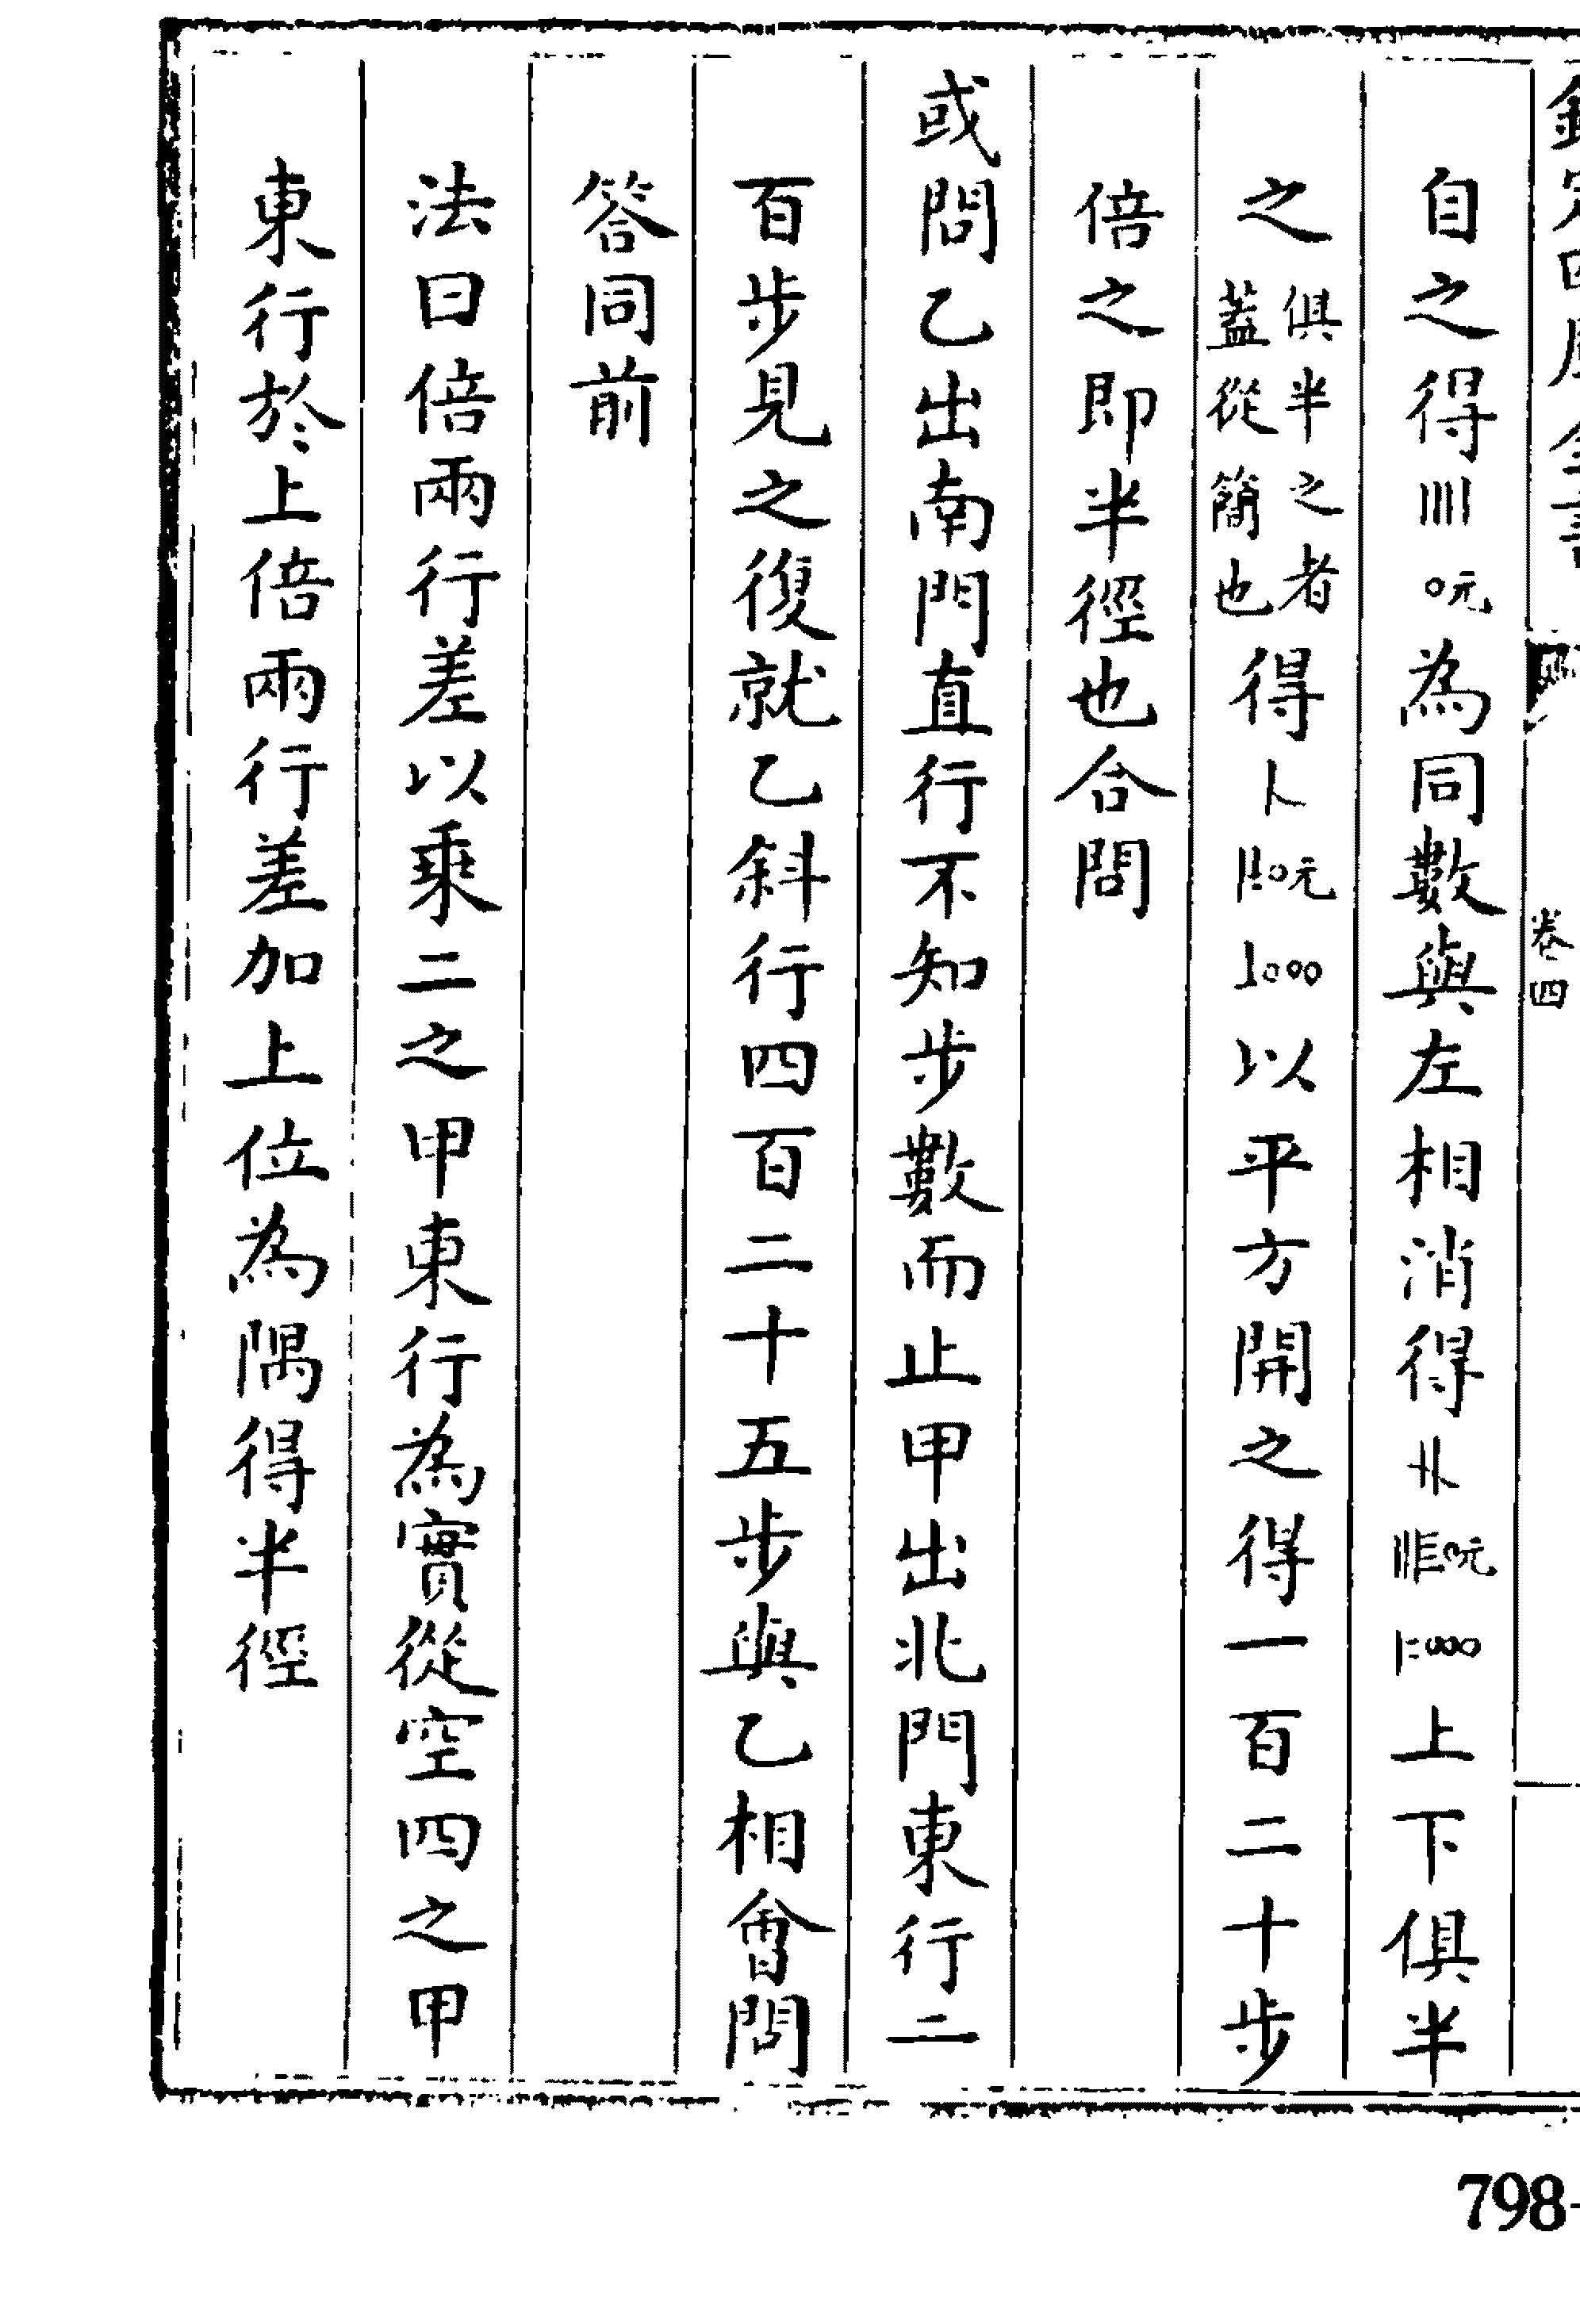 自之得〣〇元為同數與左相消得上下俱半
之俱半之者蓋從簡也得以平方開之得一百二十步
倍之即半徑也合問
或問乙出南門直行不知步數而止甲出北門東行二
百步見之復就乙斜行四百二十五步與乙相會問
答同前
法曰倍兩行差以乘二之甲東行為實從空四之甲
東行於上倍兩行差加上位為隅得半徑
卷四
798